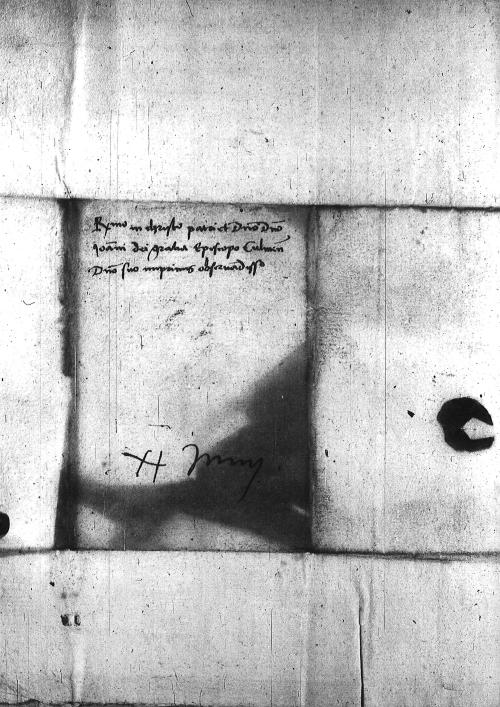 Rxmo in christo patri et Dno Dno
Joãni dei gratia Episcopo Culmen
Dno suo imprimis obseruadisso